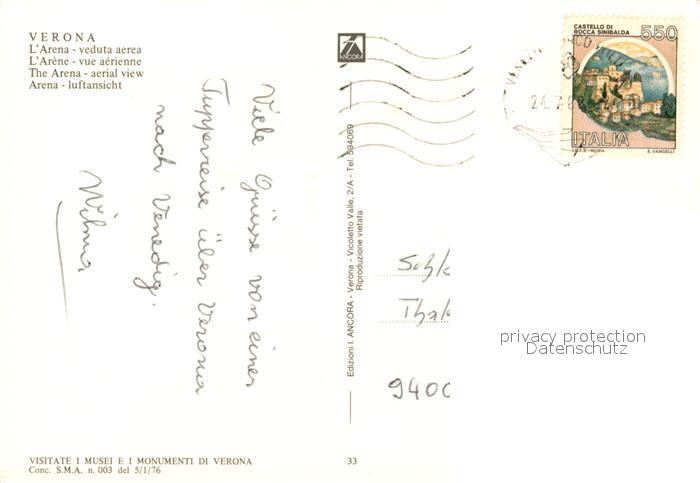 VERONA
L'Arena - veduta aerea
L'Arène - vue aérienne
The Arena - aerial view
Arena - luftansicht
Viele Grüsse von einer
Tupperreise über Verona
nach Venedig.
Wilma
ANCORA
Edizioni I. ANCORA - Verona - Vicoletto Valle, 2/A - Tel. 594069
Riproduzione vietata
CASTELLO DI
ROCCA SINIBALDA
550
ITALIA
I.P.Z.S. - ROMA E. VANGELLI
24.7.
Thal
9400
privacy protection
Datenschutz
VISITATE I MUSEI E I MONUMENTI DI VERONA
Conc. S.M.A. n. 003 del 5/1/76
33